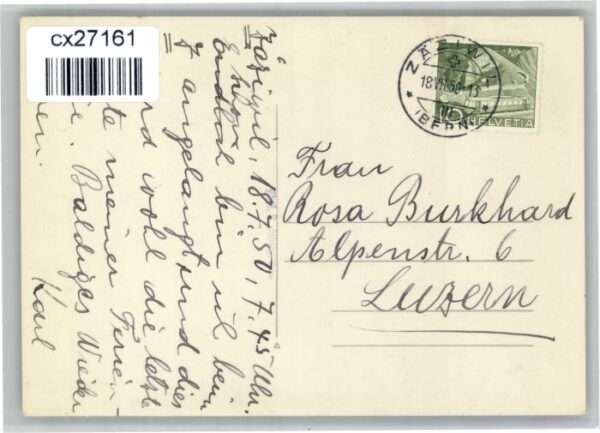 cx27161
Zäziwil, 18.7.50, 7.45 Uhr.
Endlich bin ich beim
Z angelangt und dies
wird wohl die letzte
meiner Ferien-
sein. Baldiges Wieder-
sehen.
Karl
ZÄZIWIL
18.VII.50-13
(BERN)
10 HELVETIA
Frau
Rosa Burkhard
Alpenstr. 6
Luzern